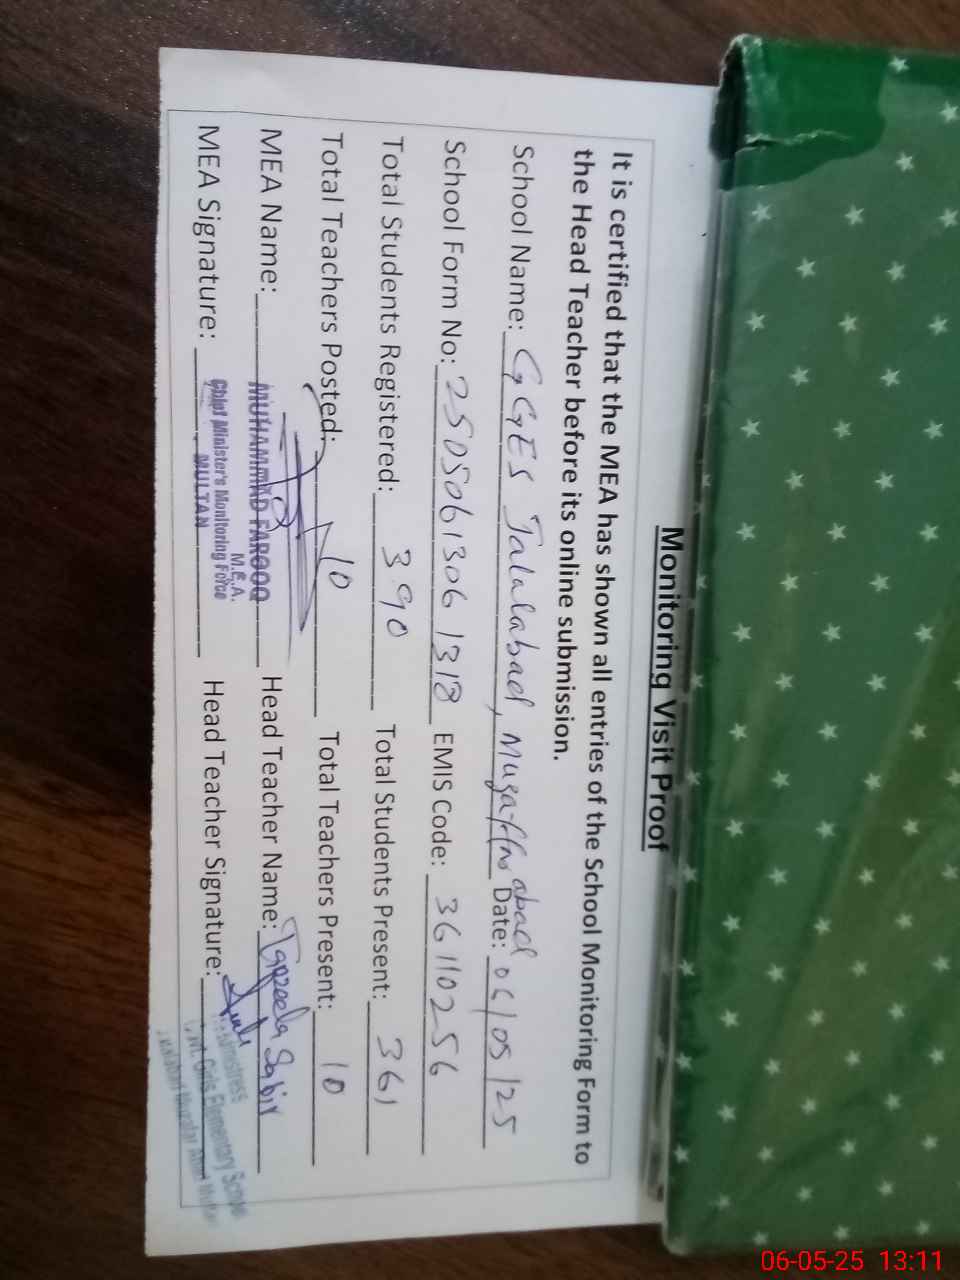 Monitoring Visit Proof
It is certified that the MEA has shown all entries of the School Monitoring Form to
the Head Teacher before its online submission.
School Name: GGES Jalalabad, Muzaffarabad Date: 06/05/25
School Form No: 2505061306 1318 EMIS Code: 36110256
Total Students Registered: 390 Total Students Present: 361
Total Teachers Posted: 10 Total Teachers Present: 10
MEA Name: MUHAMMAD FAROOQ Head Teacher Name: Sabir
M.E.A.
MEA Signature: Chief Minister's Monitoring Force Head Teacher Signature:
MULTAN
Govt. Girls Elementary School
06-05-25 13:11